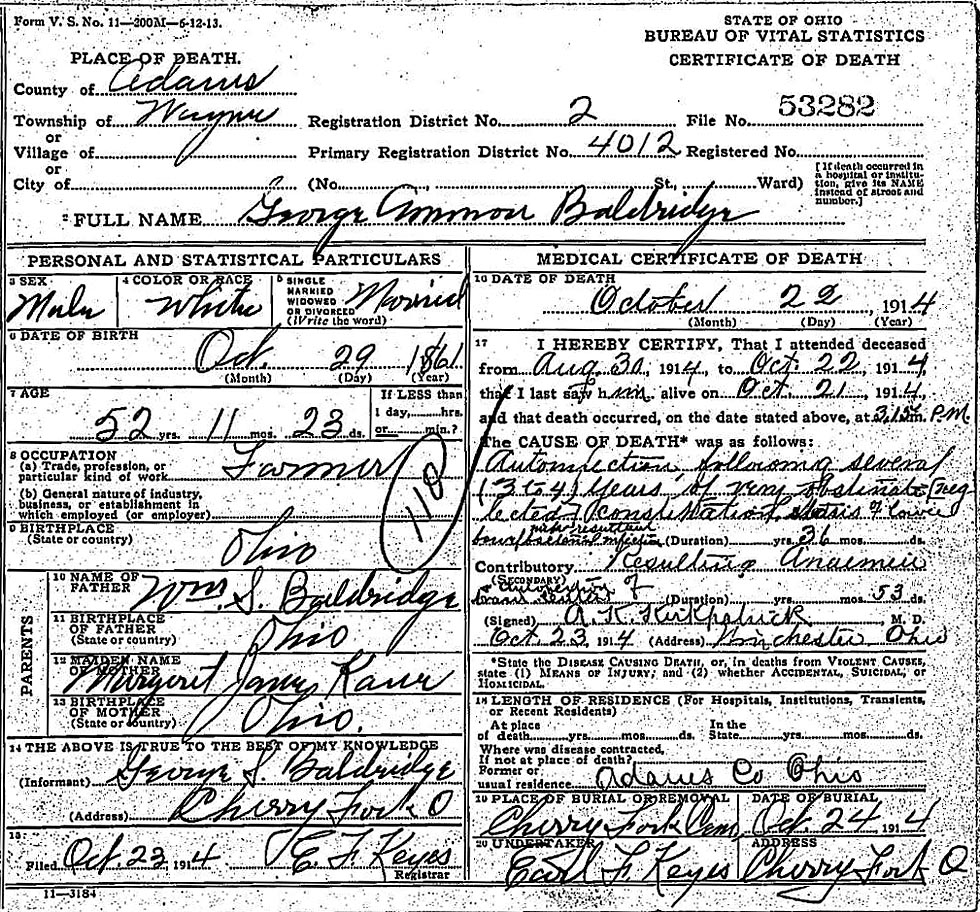 Form V. S. No. 11—200M—6-12-13.
STATE OF OHIO
BUREAU OF VITAL STATISTICS
CERTIFICATE OF DEATH
PLACE OF DEATH.
County of Adams
Township of Wayne Registration District No. 2 File No. 53282
or
Village of Primary Registration District No. 4012 Registered No.
or
City of (No. , St., Ward) [If death occurred in a hospital or institution, give its NAME instead of street and number.]
2 FULL NAME George Ammon Baldridge
PERSONAL AND STATISTICAL PARTICULARS
3 SEX Male
4 COLOR OR RACE White
5 SINGLE MARRIED WIDOWED OR DIVORCED (Write the word) Married
6 DATE OF BIRTH
Oct. 29 1861
(Month) (Day) (Year)
7 AGE
52 yrs. 11 mos. 23 ds.
If LESS than 1 day, hrs. or min.?
8 OCCUPATION
(a) Trade, profession, or particular kind of work Farmer
(b) General nature of industry, business, or establishment in which employed (or employer)
118
9 BIRTHPLACE
(State or country) Ohio
PARENTS
10 NAME OF FATHER Wm. S. Baldridge
11 BIRTHPLACE OF FATHER (State or country) Ohio
12 MAIDEN NAME OF MOTHER Margaret Jane
13 BIRTHPLACE OF MOTHER (State or country) Ohio.
14 THE ABOVE IS TRUE TO THE BEST OF MY KNOWLEDGE
(Informant) George S Baldridge
(Address) Cherry Fork O
15
Filed Oct. 23 1914 E. F. Keyes
Registrar
11—3184
MEDICAL CERTIFICATE OF DEATH
16 DATE OF DEATH
October 22, 1914
(Month) (Day) (Year)
17 I HEREBY CERTIFY, That I attended deceased
from Aug. 30, 1914, to Oct. 22 1914,
that I last saw him alive on Oct. 21, 1914,
and that death occurred, on the date stated above, at 3,15 m. P.M
The CAUSE OF DEATH* was as follows:
Autoinfection following several
(3 to 4) years of very obstinate [neg
lected] Constipation, Stasis of lower
bowel resultant (Duration) yrs. 36 mos. ds.
Contributory Resulting Anaemia
(SECONDARY) of
(Duration) yrs. mos. 53 ds.
(Signed) A. K. Kirkpatrick M. D.
Oct 23, 1914 (Address) Winchester Ohio
*State the DISEASE CAUSING DEATH, or, in deaths from VIOLENT CAUSES, state (1) MEANS OF INJURY; and (2) whether ACCIDENTAL, SUICIDAL, or HOMICIDAL.
18 LENGTH OF RESIDENCE (For Hospitals, Institutions, Transients, or Recent Residents)
At place of death yrs. mos. ds. In the State yrs. mos. ds.
Where was disease contracted, If not at place of death?
Former or usual residence Adams Co Ohio
19 PLACE OF BURIAL OR REMOVAL DATE OF BURIAL
Cherry Fork Cem Oct. 24 1914
20 UNDERTAKER ADDRESS
Earl F Keyes Cherry Fork O